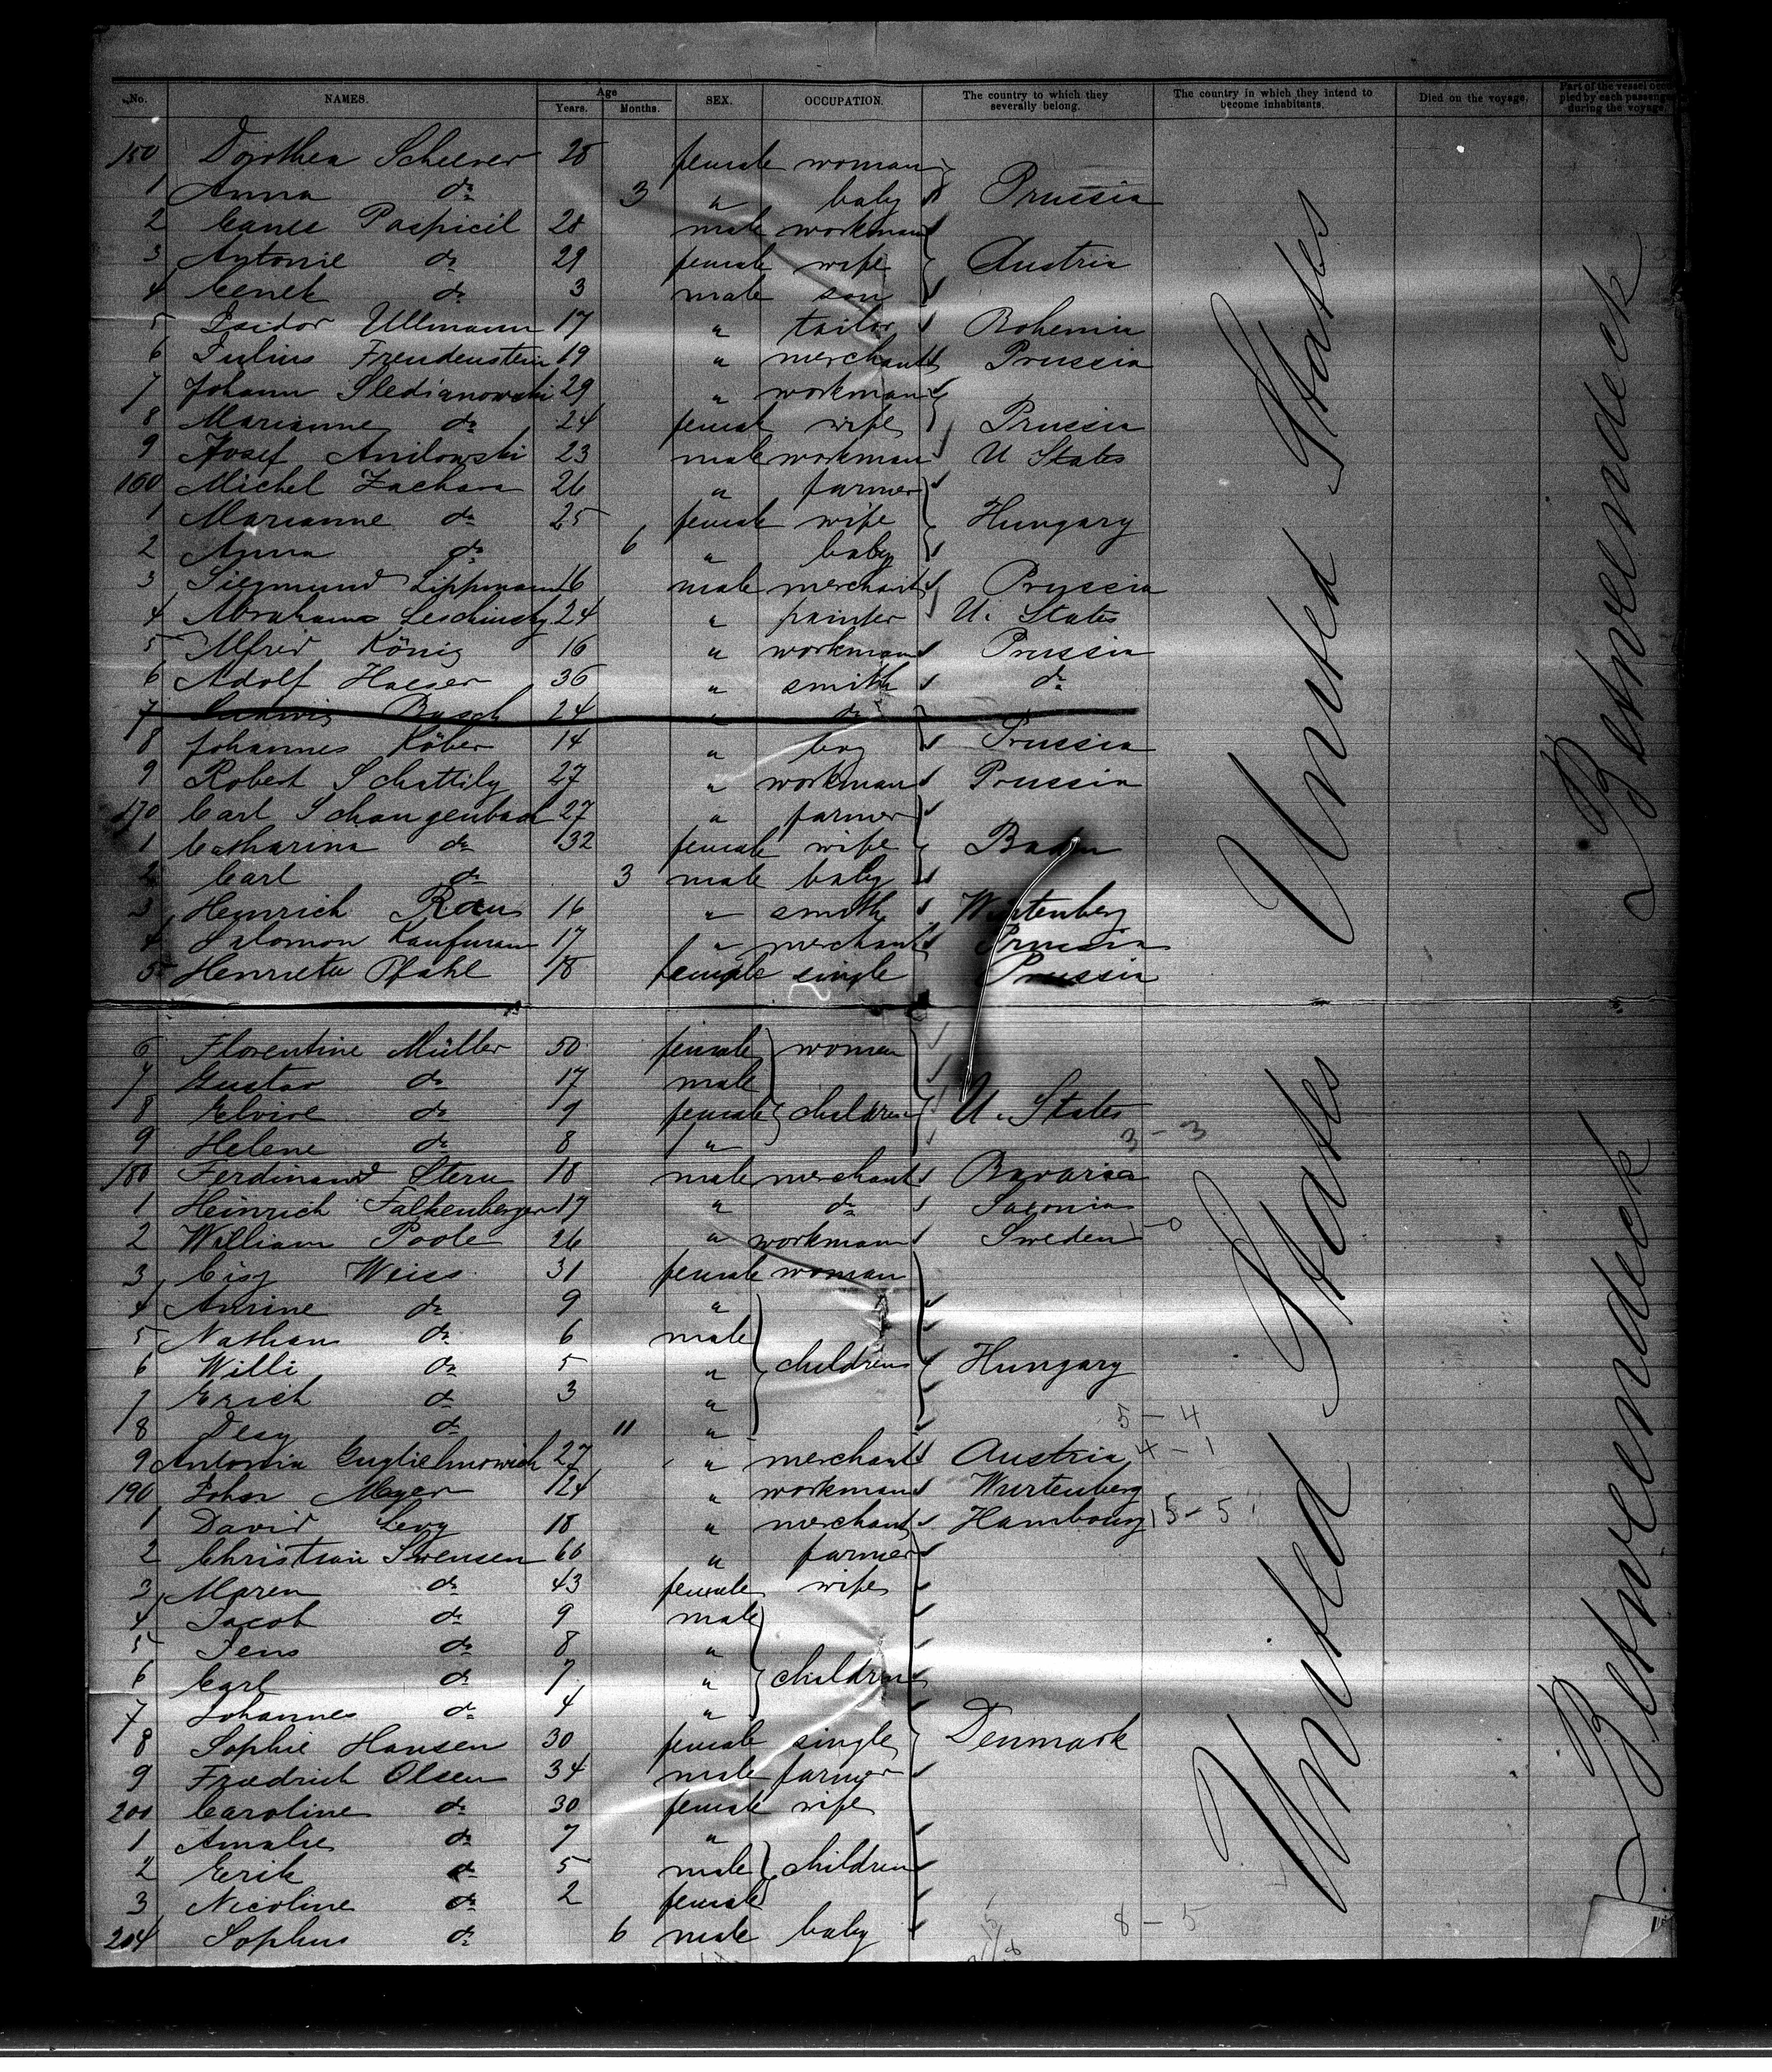 No. NAMES. Age Years. Months. SEX. OCCUPATION. The country to which they severally belong. The country in which they intend to become inhabitants. Died on the voyage. Part of the vessel occupied by each passenger during the voyage.
150 Dorothea Scheerer 28 female woman
1 Anna do 3 " baby Prussia
2 Pospicil 28 male workman
3 Antonie do 29 female wife Austria
4 Cenek do 3 male son
5 Isidor Ullmann 17 " tailor Bohemia
6 Julius Freudenstein 19 " merchant Prussia
7 Johann Sledianowski 29 " workman
8 Marianne do 24 female wife Prussia
9 Josef Anilowski 23 male workman U States
160 Michel Zachara 26 " farmer
1 Marianne do 25 female wife Hungary
2 Anna do 6 " baby
3 Siegmund Lippmann 16 male merchant Prussia
4 Abrahams Leschinsky 24 " painter U. States
5 Alfred König 16 " workman Prussia
6 Adolf Haeser 36 " smith do
7 Ludwig Busch 24 " do
8 Johannes Köber 14 " boy Prussia
9 Robert Schattily 27 " workman Prussia
170 Carl Schangenbach 27 " farmer
1 Catharina do 32 female wife Baden
2 Carl do 3 male baby
3 Heinrich Rau 16 " smith Wurtenberg
4 Salomon Kaufmann 17 " merchant Prussia
5 Henriette Pfahl 18 female single Prussia
United States
Betweendeck
6 Florentine Müller 50 female women
7 Gustav do 17 male
8 Elvire do 9 female children U. States
9 Helene do 8 " 3 - 3
180 Ferdinand Stern 18 male merchant Bavaria
1 Heinrich Falkenberger 17 " do Saxonia
2 William Poole 26 " workman Sweden 1-0
3 Cisy Weiss 31 female woman
4 Anrine do 9 "
5 Nathan do 6 male
6 Willi do 5 " children Hungary
7 Erich do 3 "
8 Desy do 11 " 5 - 4
9 Antonia Guglielmowich 27 " merchant Austria 4 - 1
190 John Meyer 24 " workman Wurtenberg
1 David Levy 18 " merchant Hambourg 15 - 5
2 Christian Swensen 60 " farmer
3 Maren do 43 female wife
4 Jacob do 9 male
5 Jens do 8 "
6 Carl do 7 " children
7 Johannes do 4 "
8 Sophie Hansen 30 female single Denmark
9 Friedrich Olsen 34 male farmer
200 Caroline do 30 female wife
1 Amalie do 7 "
2 Erik do 5 male children
3 Nicoline do 2 female
204 Sophus do 6 male baby 8 - 5
United States
Betweendeck